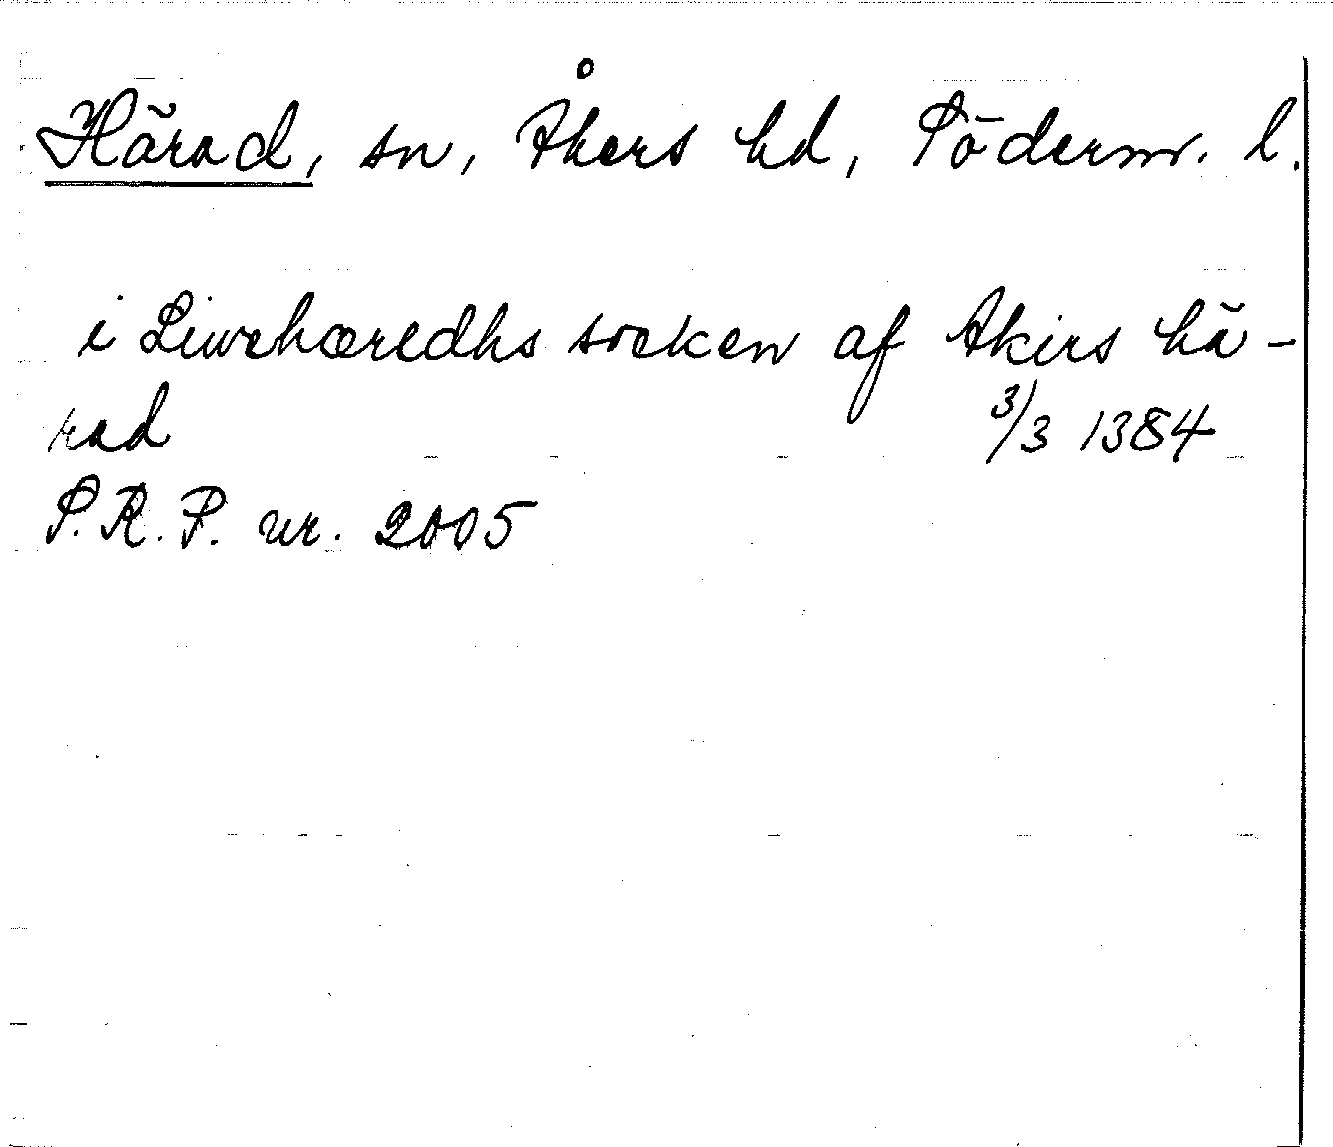 Härad, sn, Åkers hd, Söderm. l.
i Liwrehæredhs socken af Akirs hä-
rad 3/3 1384
S.R.P. nr. 2005